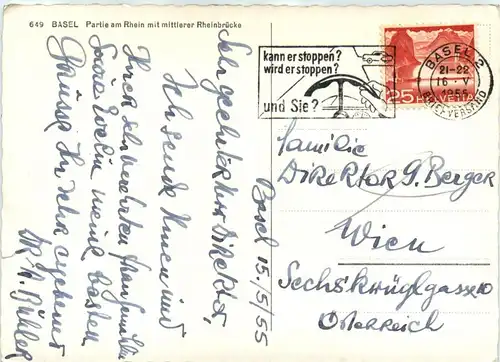 649 BASEL Partie am Rhein mit mittlerer Rheinbrücke
kann er stoppen?
wird er stoppen?
und Sie?
BASEL 2
21-22
16. V
1955
BRIEFVERSAND
25 HELVETIA
Basel 15/5/55
Sehr geehrter Herr Direktor,
Ich sende Ihnen und
Ihrer sehr verehrten Frau Gemahlin
sowie Evelin meine besten
Grüsse Ihr sehr ergebener
Familie
Direktor G. Berger
Wien
Sechskrüglgasse 10
Österreich